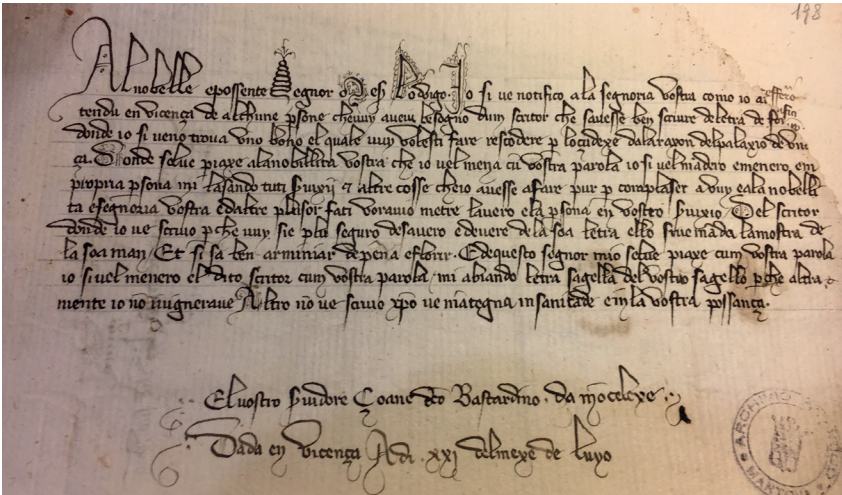 198
Al nobelle e possente segnor Mes Lodigo. Io si ve notifico a la segnoria vostra como io ai
tendu en vicença de alchune psone che vuy avevi besogno dum scritor che savesse ben scrivre de letra de
donde io si ve no trova uno bono el quale vuy volesti fare rescodere p
ça. Donde se lve piaxe a la nobillita vostra che io vel mena cu vostra parola io si vel manderò e menero em
propria psona mi lasando tuti svixii & altre cosse che io avesse a fare pur p complaser a vuy e a la nobelli
ta e segnoria vostra e daltre plusor fati voravio metre lavero e la psona en vostro svixio. Del scritor
donde io ve scrivo p che vuy sie plu seguro de savero e devere de la soa letra ello ve manda la mostra de
la soa man. Et si sa ben arminiar de pena e florir. E de questo segnor mio se lve piaxe cum vostra parola
io si vel menero el dito scritor cum vostra parola. mi abiando letra sagella del vostro sagello p che altra
mente io nō vignerave Altro nō ve scrivo xpo ve mategna in sanitade e in la vostra possança.
El vostro svidore Çoane dco Bastardino. da mocelexe.
Dada en vicença Adi. xxi del mexe de luyo